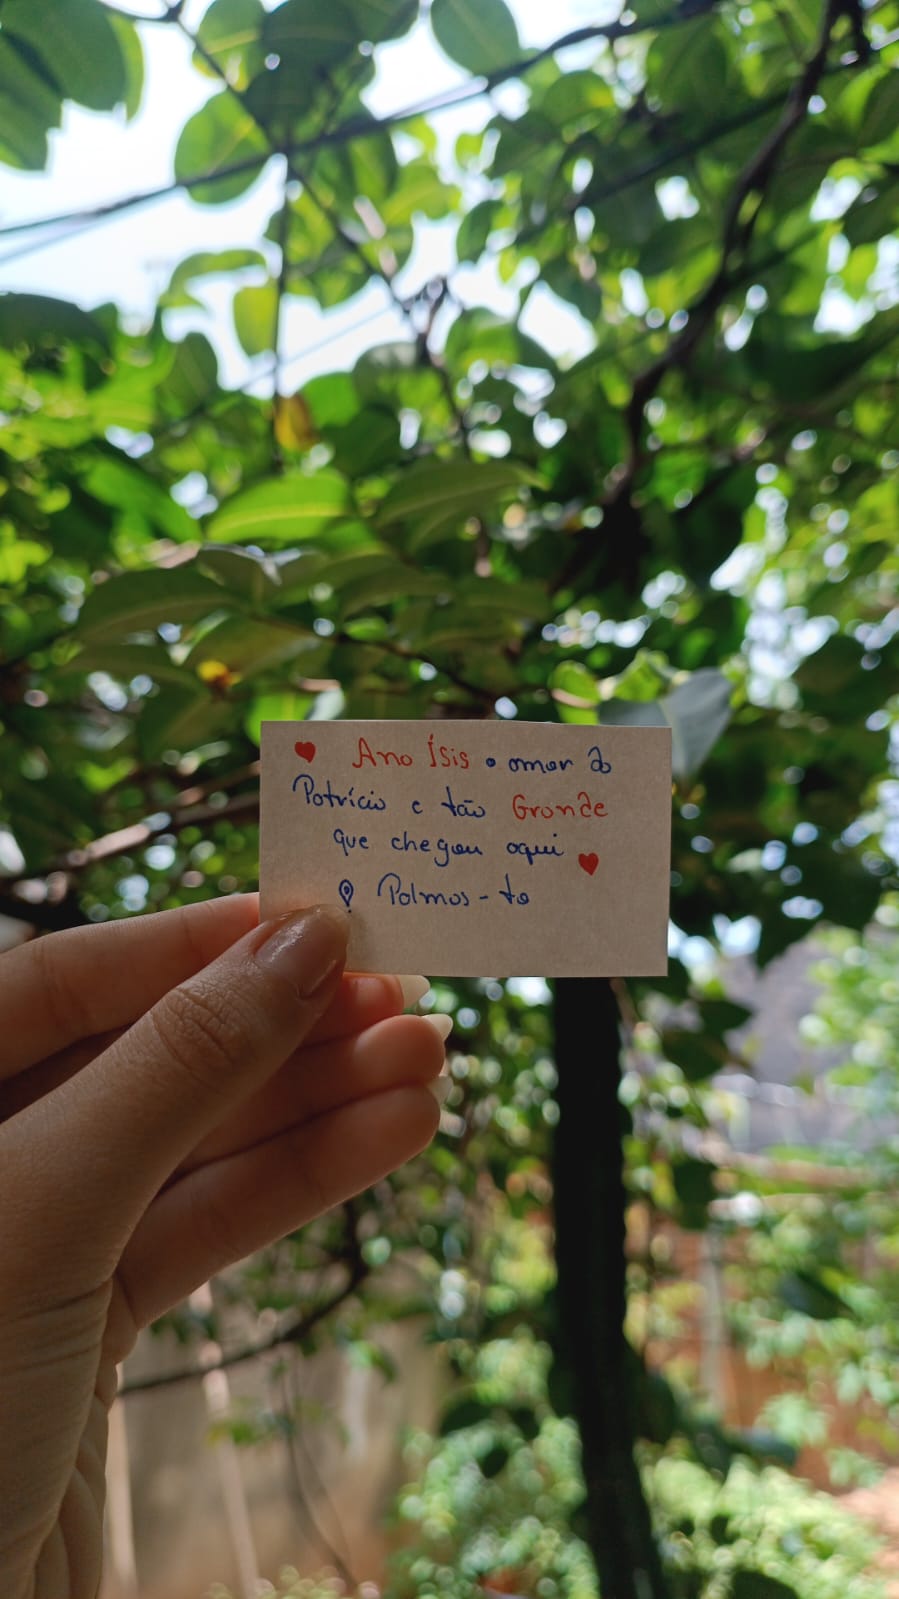 ♥ Ana Ísis o amor do
Patrício é tão Grande
que chegou aqui ♥
Palmas - to